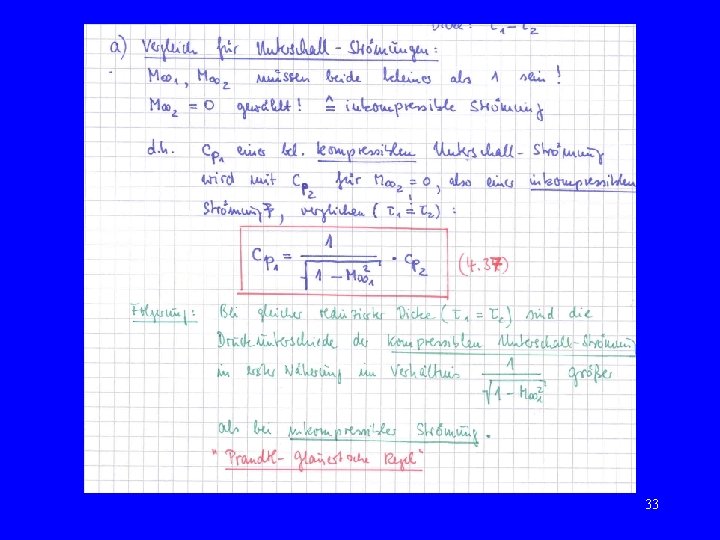 Dicke: τ₁ – τ₂
a) Vergleich für Unterschall – Strömungen:
M∞₁, M∞₂ müssen beide kleiner als 1 sein!
M∞₂ = 0 gewählt! ≙ inkompressible Strömung
d.h. Cp₁ einer bel. kompressiblen Unterschall – Strömung
wird mit Cp₂ für M∞₂ = 0, also einer inkompressiblen
Strömung, verglichen (τ₁ = τ₂) :
Cp₁ = 1 / √(1 – M∞₁²) · Cp₂ (4.37)
Folgerung: Bei gleicher reduzierter Dicke (τ₁ = τ₂) sind die
Druckunterschiede der kompressiblen Unterschall-Strömung
in erster Näherung im Verhältnis 1 / √(1 – M∞₁²) größer
als bei inkompressibler Strömung.
"Prandtl – Glauertsche Regel"
33